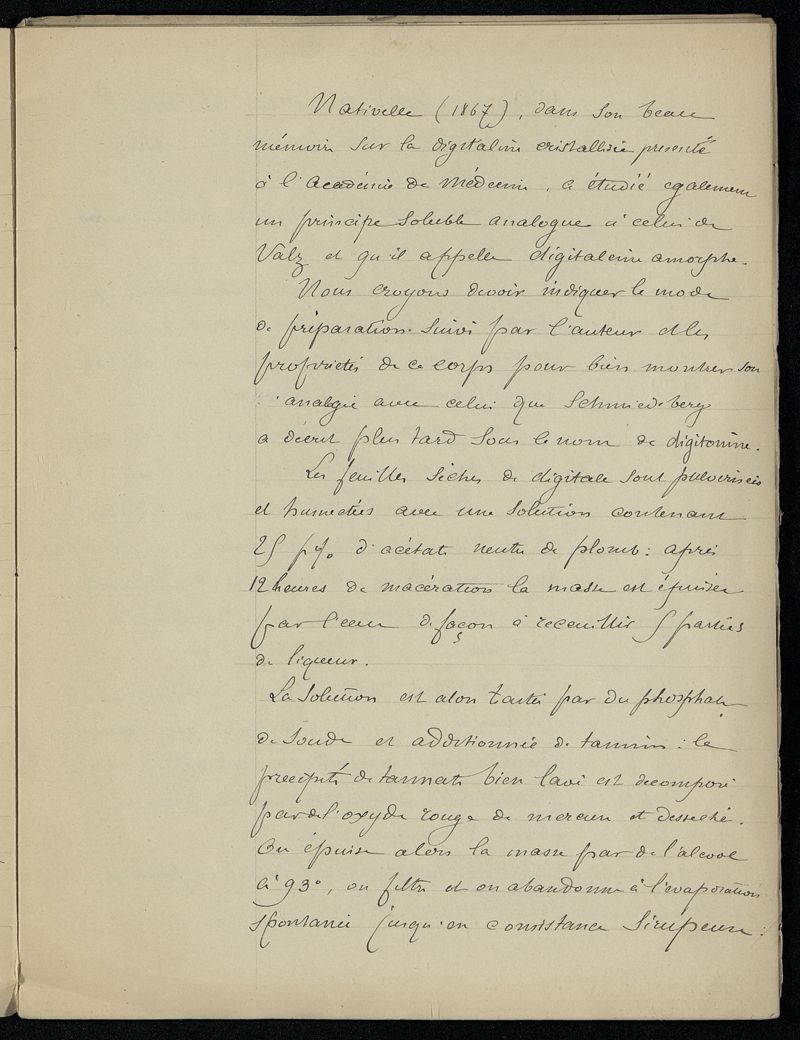 Nativelle (1867), dans son beau
mémoire sur la digitaline cristallisée presenté
à l'Académie de Médecine, a étudié egalement
un principe soluble analogue à celui de
Valz et qu'il appelle digitaleine amorphe.
Nous croyons devoir indiquer le mode
de préparation suivi par l'auteur et les
proprietés de ce corps pour bien montrer son
analogie avec celui que Schmiedeberg
a décrit plus tard sous le nom de digitonine.
Les feuilles sèches de digitale sont pulverisées
et humectées avec une solution contenant
25 p% d'acétate neutre de plomb : après
12 heures de macération la masse est épuisée
par l'eau de façon à receuillir 5 parties
de liqueur.
La solution est alors traitée par du phosphate
de soude et additionnée de tannin : le
precipité de tannate bien lavé est decomposé
par de l'oxyde rouge de mercure et desseché.
On épuise alors la masse par de l'alcool
à 93°, on filtre et on abandonne à l'evaporation
spontanée jusqu'en consistance sirupeuse :